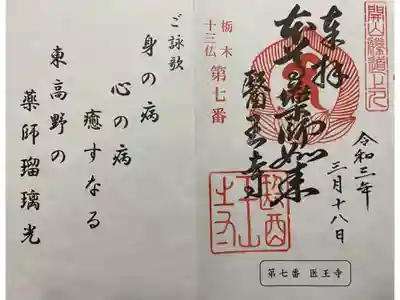 令和三年
三月十八日
奉拝
本尊薬師如来
醫王寺
栃木
十三仏
第七番
第七番 医王寺
ご詠歌
身の病
心の病
癒すなる
東高野の
薬師瑠璃光